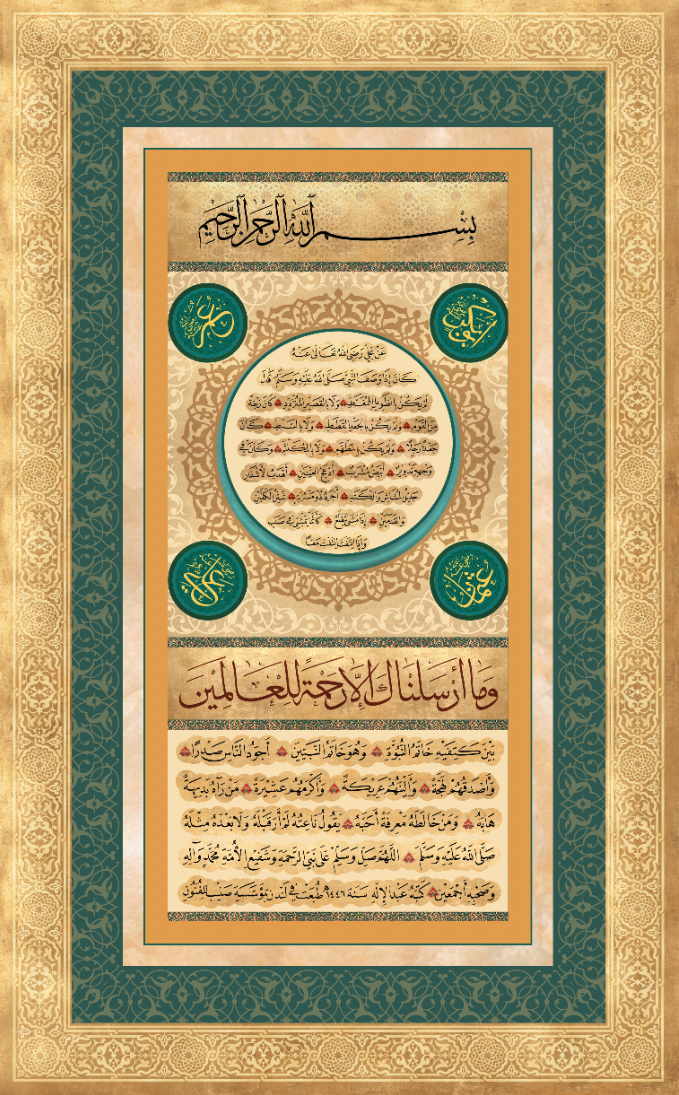 بِسْمِ اللهِ الرَّحْمٰنِ الرَّحِيمِ
أبي بكر
عمر
عَنْ عَلِيٍّ رَضِيَ اللهُ تَعَالَىٰ عَنْهُ
كَانَ إِذَا وَصَفَ النَّبِيَّ صَلَّى اللهُ عَلَيْهِ وَسَلَّمَ قَالَ
لَمْ يَكُنْ بِالطَّوِيلِ الْمُمَّغِطِ وَلَا بِالْقَصِيرِ الْمُتَرَدِّدِ كَانَ رَبْعَةً
مِنَ الْقَوْمِ وَلَمْ يَكُنْ بِالْجَعْدِ الْقَطَطِ وَلَا بِالسَّبِطِ كَانَ
جَعْدًا رَجِلًا وَلَمْ يَكُنْ بِالْمُطَهَّمِ وَلَا بِالْمُكَلْثَمِ وَكَانَ فِي
وَجْهِهِ تَدْوِيرٌ أَبْيَضُ مُشْرَبٌ أَدْعَجُ الْعَيْنَيْنِ أَهْدَبُ الْأَشْفَارِ
جَلِيلُ الْمُشَاشِ وَالْكَتَدِ أَجْرَدُ ذُو مَسْرُبَةٍ شَثْنُ الْكَفَّيْنِ
وَالْقَدَمَيْنِ إِذَا مَشَىٰ تَقَلَّعَ كَأَنَّمَا يَمْشِي فِي صَبَبٍ
وَإِذَا الْتَفَتَ الْتَفَتَ مَعًا
عثمان
علي
وَمَا أَرْسَلْنَاكَ إِلَّا رَحْمَةً لِلْعَالَمِينَ
بَيْنَ كَتِفَيْهِ خَاتَمُ النُّبُوَّةِ وَهُوَ خَاتَمُ النَّبِيِّينَ أَجْوَدُ النَّاسِ صَدْرًا
وَأَصْدَقُهُمْ لَهْجَةً وَأَلْيَنُهُمْ عَرِيكَةً وَأَكْرَمُهُمْ عَشِيرَةً مَنْ رَآهُ بَدِيهَةً
هَابَهُ وَمَنْ خَالَطَهُ مَعْرِفَةً أَحَبَّهُ يَقُولُ نَاعِتُهُ لَمْ أَرَ قَبْلَهُ وَلَا بَعْدَهُ مِثْلَهُ
صَلَّى اللهُ عَلَيْهِ وَسَلَّمَ اللَّهُمَّ صَلِّ وَسَلِّمْ عَلَىٰ نَبِيِّ الرَّحْمَةِ وَشَفِيعِ الْأُمَّةِ مُحَمَّدٍ وَآلِهِ
وَصَحْبِهِ أَجْمَعِينَ كَتَبَهُ عَبْدُ الْإِلٰهِ سَنَةَ ١٤٤٦هـ طُبِعَتْ فِي لَنْدَن بِمُؤَسَّسَةِ لِلْفُنُونِ